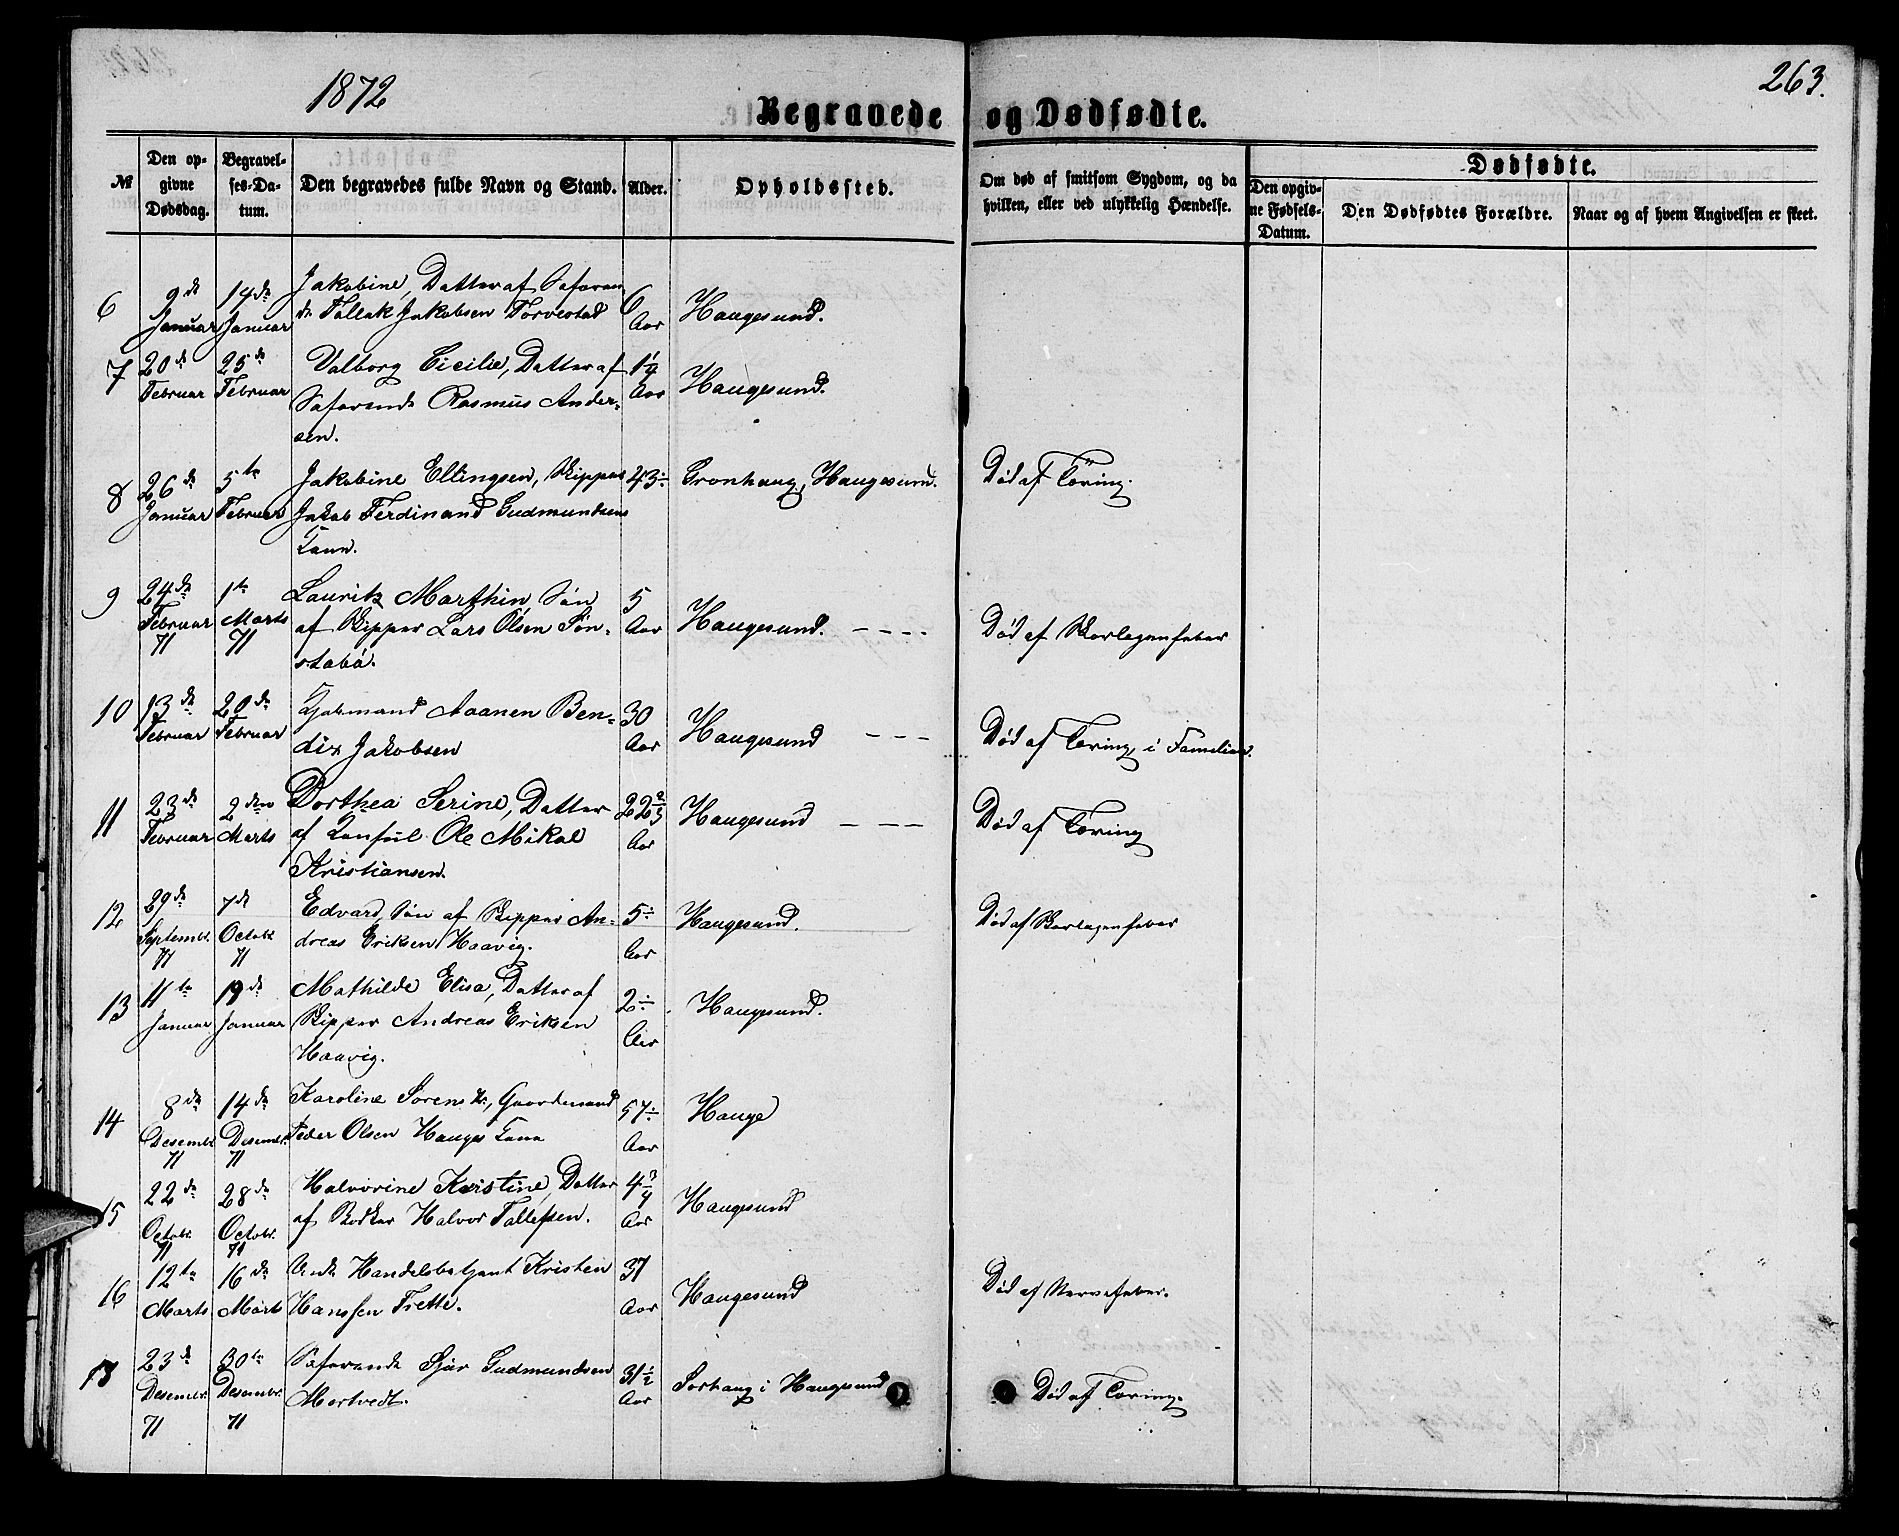 1872
263.
Begravede og Dødfødte.
№
Den opgivne Dødsdag.
Begravelses-Datum.
Den begravedes fulde Navn og Stand.
Alder.
Opholdssted.
Om død af smitsom Sygdom, og da hvilken, eller ved ulykkelig Hændelse.
Dødfødte.
Den opgivne Fødsels-Datum.
Den Dødfødtes Forældre.
Naar og af hvem Angivelsen er skeet.
6 9de Januar 14de Januar Jakobine, Datter af Søfarende Tallak Jakobsen Torvestad 6 Aar Haugesund.
7 20de Februar 25de Februar Valborg Cicilie, Datter af Søfarende Rasmus Andersen. 1 1/4 Aar Haugesund.
8 26de Januar 5te Februar Jakobine Ellingsen, Skipper Jakob Ferdinand Gudmundsens Kone. 43 Gronhaug, Haugesund. Død af Tæring.
9 24de Februar 71 1te Marts 71 Lauritz Marthin, Søn af Skipper Lars Olsen Sønstabø. 5 Aar Haugesund. Død af Skarlagensfeber
10 13de Februar 20de Februar Aanen Bendix Jakobsen 30 Aar Haugesund Død af Tæring, i Familien.
11 23de Februar 2den Marts Dorthea Serine, Datter af Ole Mikal Kristiansen. 22 2/3 Aar Haugesund Død af Tæring
12 29de Septembr. 71 7de Octobr. 71 Edvard, Søn af Skipper Andreas Eriksen Haavig. 5 Aar Haugesund. Død af Skarlagensfeber
13 11te Januar 19de Januar Mathilde Elisa, Datter af Skipper Andreas Eriksen Haavig. 2 Aar Haugesund.
14 8de Desembr. 71 14de Desembr. 71 Karoline Sørens Dr., Gaardmand Peder Olsen Hauges Kone 57 Aar Hauge
15 22de Octobr. 71 28de Octobr. 71 Halvorine Kristine, Datter af Bødker Halvor Tallefsen. 4 3/4 Aar Haugesund
16 12te Marts 16de Marts Handelsbetjent Kristen Hanssen Trette. 37 Aar Haugesund Død af Nervefeber.
17 23de Desembr. 71 30te Desembr. 71 Søfarende Sjur Gudmundsen Mortvedt. 31 1/2 Aar Sørhaug i Haugesund Død af Tæring.